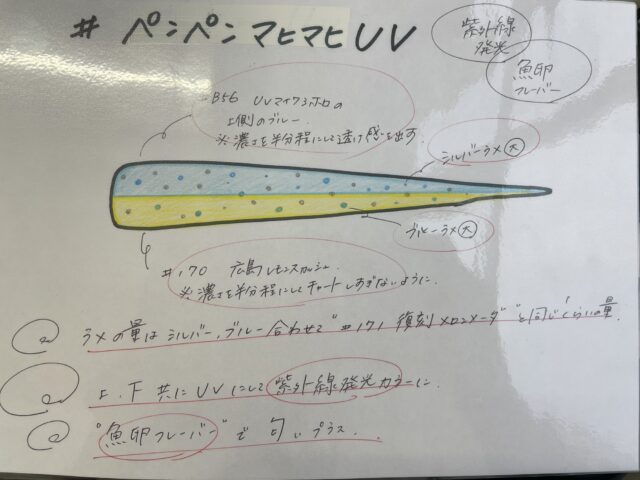 # ペンペンマヒマヒUV
紫外線
発光
魚卵
フレーバー
B56 UVマイクロホロの
上側のブルー.
※濃さを半分程にして透け感を出す.
シルバーラメ大
ブルーラメ大
#170 広島レモンスカッシュ.
※濃さを半分程にしてチャートしすぎないように.
ラメの量はシルバー,ブルー合わせて"#171 復刻メロンソーダ"と同じくらいの量.
上.下共にUVにして紫外線発光カラーに.
"魚卵フレーバー"で匂いプラス.